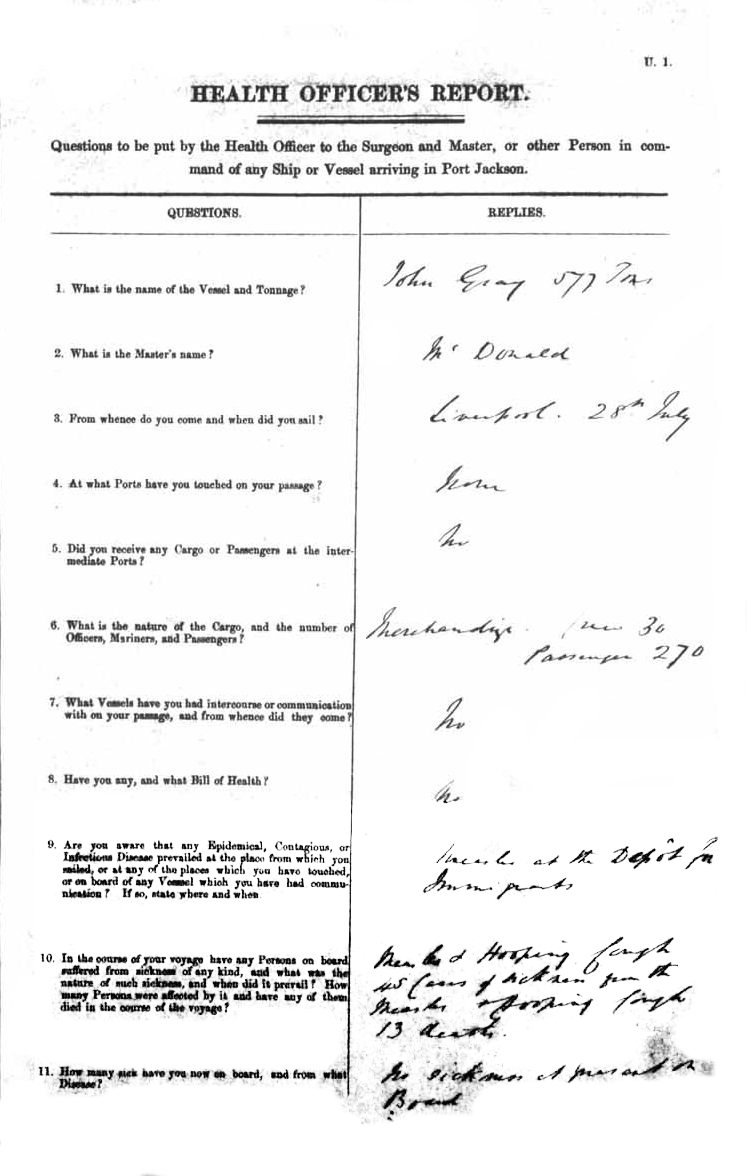 U. 1.
HEALTH OFFICER'S REPORT.
Questions to be put by the Health Officer to the Surgeon and Master, or other Person in com-
mand of any Ship or Vessel arriving in Port Jackson.
QUESTIONS.
REPLIES.
1. What is the name of the Vessel and Tonnage?
John Gray 577 Tons
2. What is the Master's name?
Mc Donald
3. From whence do you come and when did you sail?
Liverpool. 28th July
4. At what Ports have you touched on your passage?
None
5. Did you receive any Cargo or Passengers at the inter-
mediate Ports?
No
6. What is the nature of the Cargo, and the number of
Officers, Mariners, and Passengers?
Merchandize. Crew 30
Passenger 270
7. What Vessels have you had intercourse or communication
with on your passage, and from whence did they come?
No
8. Have you any, and what Bill of Health?
No
9. Are you aware that any Epidemical, Contagious, or
Infectious Disease prevailed at the place from which you
sailed, or at any of the places which you have touched,
or on board of any Vessel which you have had commu-
nication? If so, state where and when.
Measles at the Depôt for
Immigrants
10. In the course of your voyage have any Persons on board
suffered from sickness of any kind, and what was the
nature of such sickness, and when did it prevail? How
many Persons were affected by it and have any of them
died in the course of the voyage?
Measles & Hooping Cough
45 Cases of sickness from the
Measles & Hooping Cough
13 deaths.
11. How many sick have you now on board, and from what
Disease?
No sickness at present on
Board